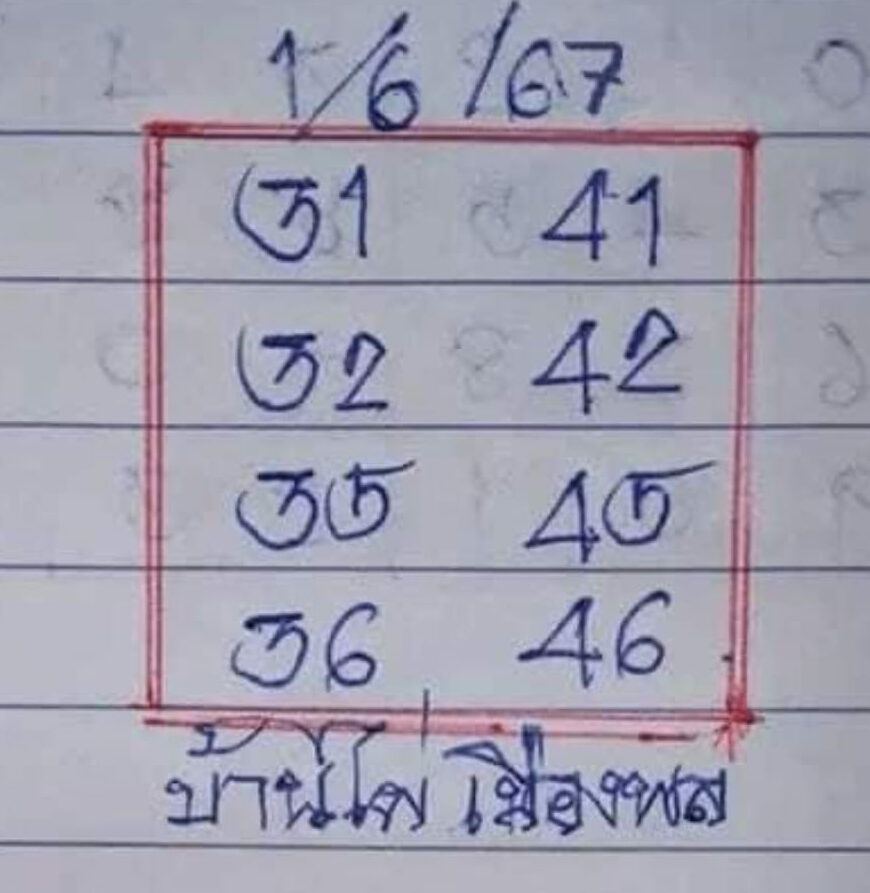 1/6/67
31 41
32 42
35 45
36 46
บ้านไผ่ เมืองพล